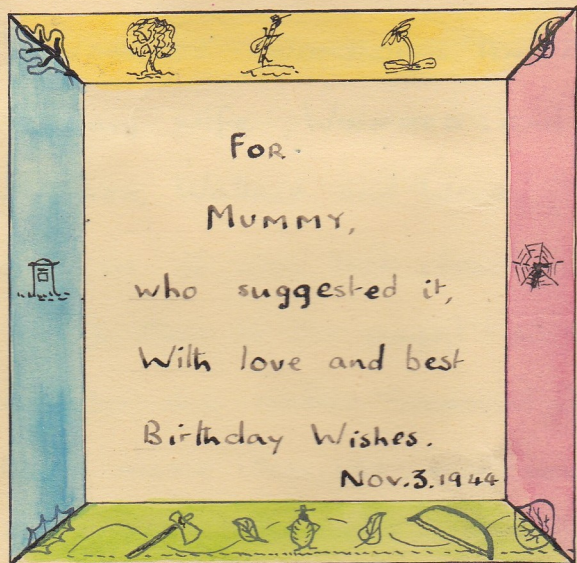 For
Mummy,
who suggested it,
With love and best
Birthday Wishes.
Nov.3.1944